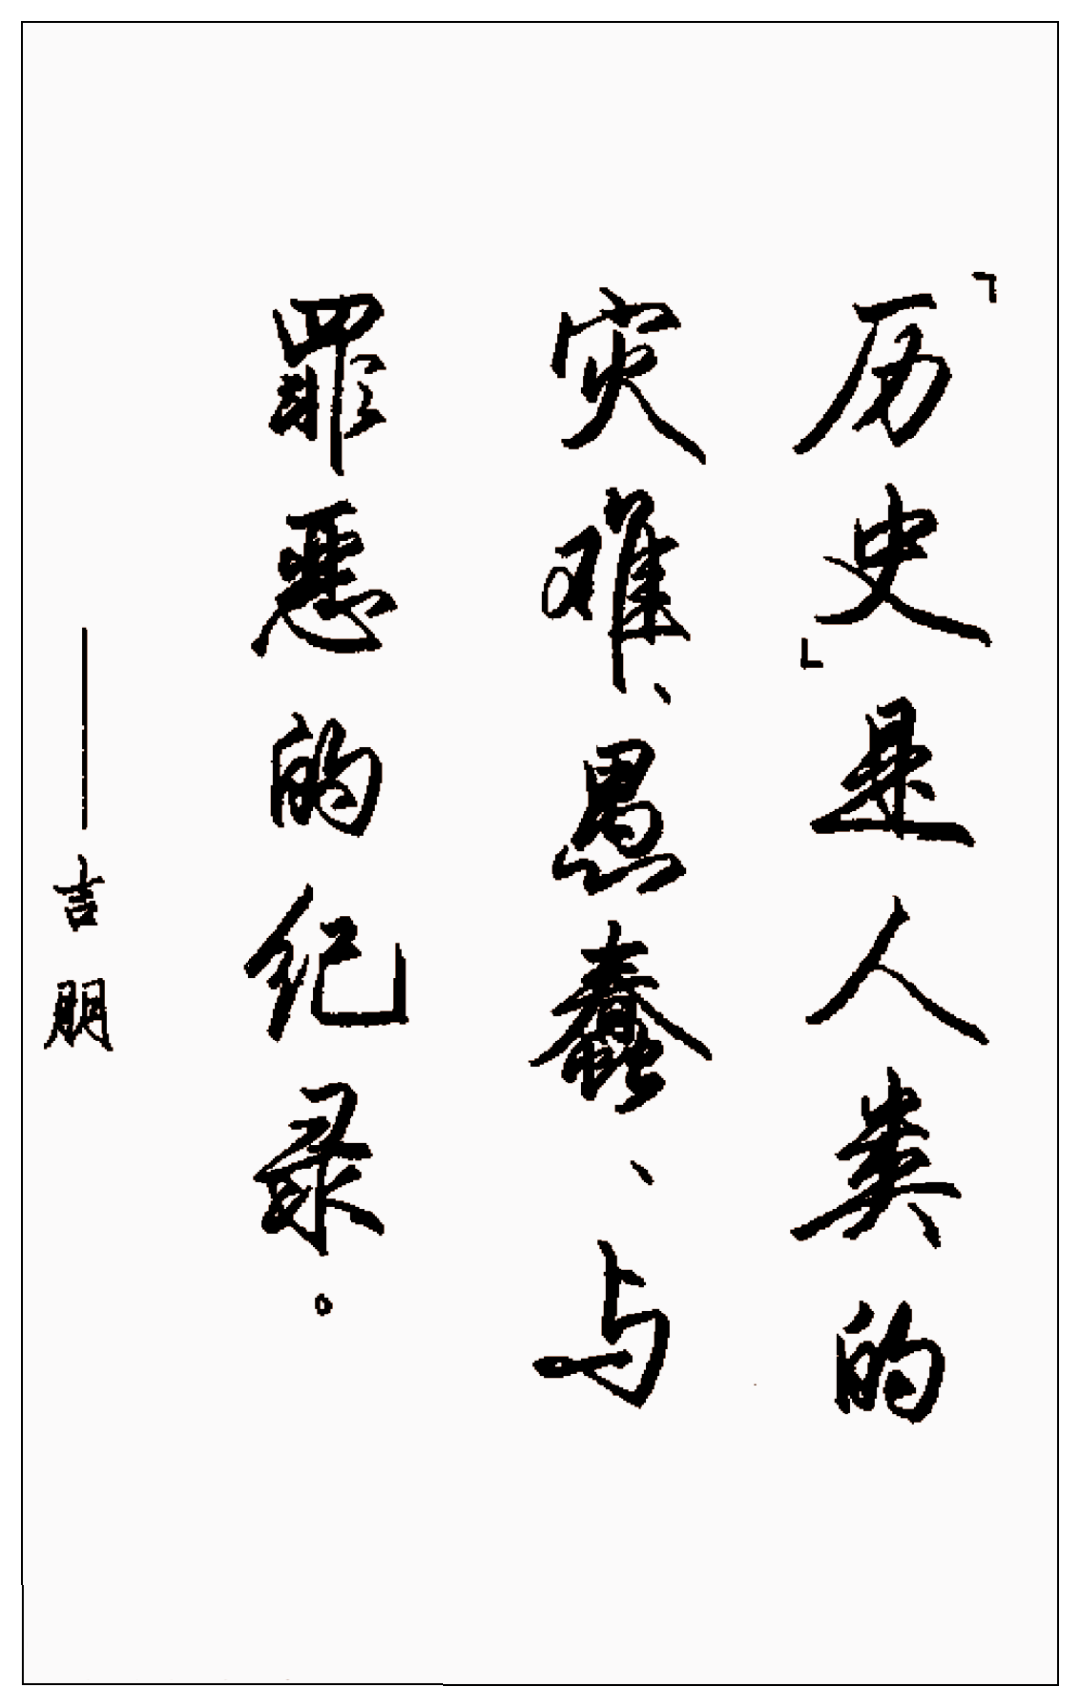 「历史」是人类的
灾难、愚蠢、与
罪恶的纪录。
——吉朋